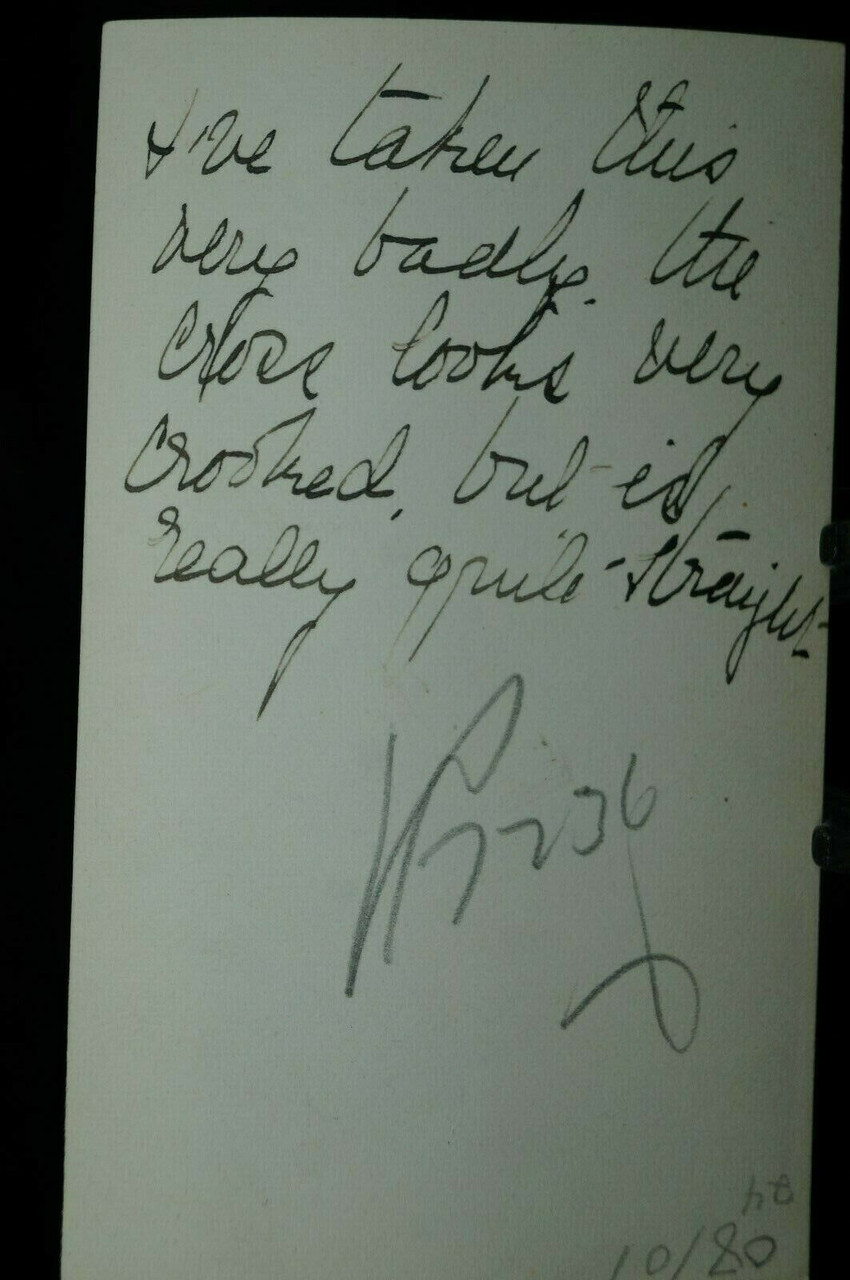 I've taken this
very badly. The
cross looks very
crooked, but is
really quite straight
10/80